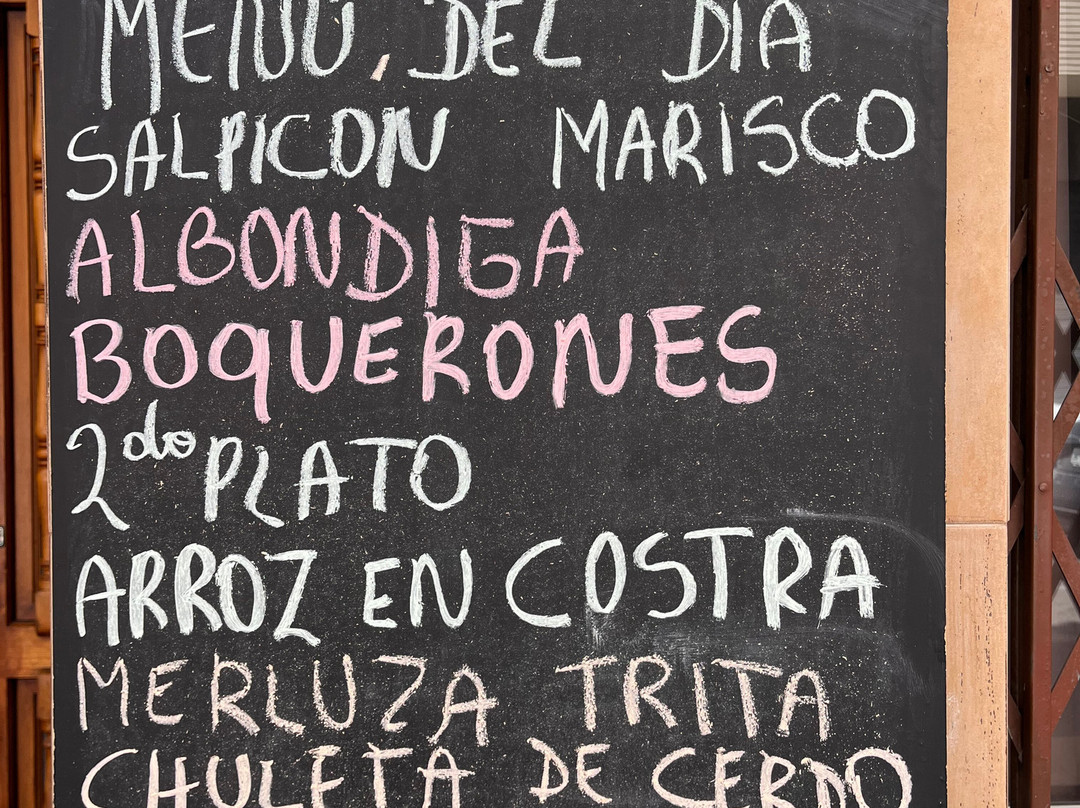 MENÚ DEL DIA
SALPICON MARISCO
ALBONDIGA
BOQUERONES
2do PLATO
ARROZ EN COSTRA
MERLUZA TRITA
CHULETA DE CERDO